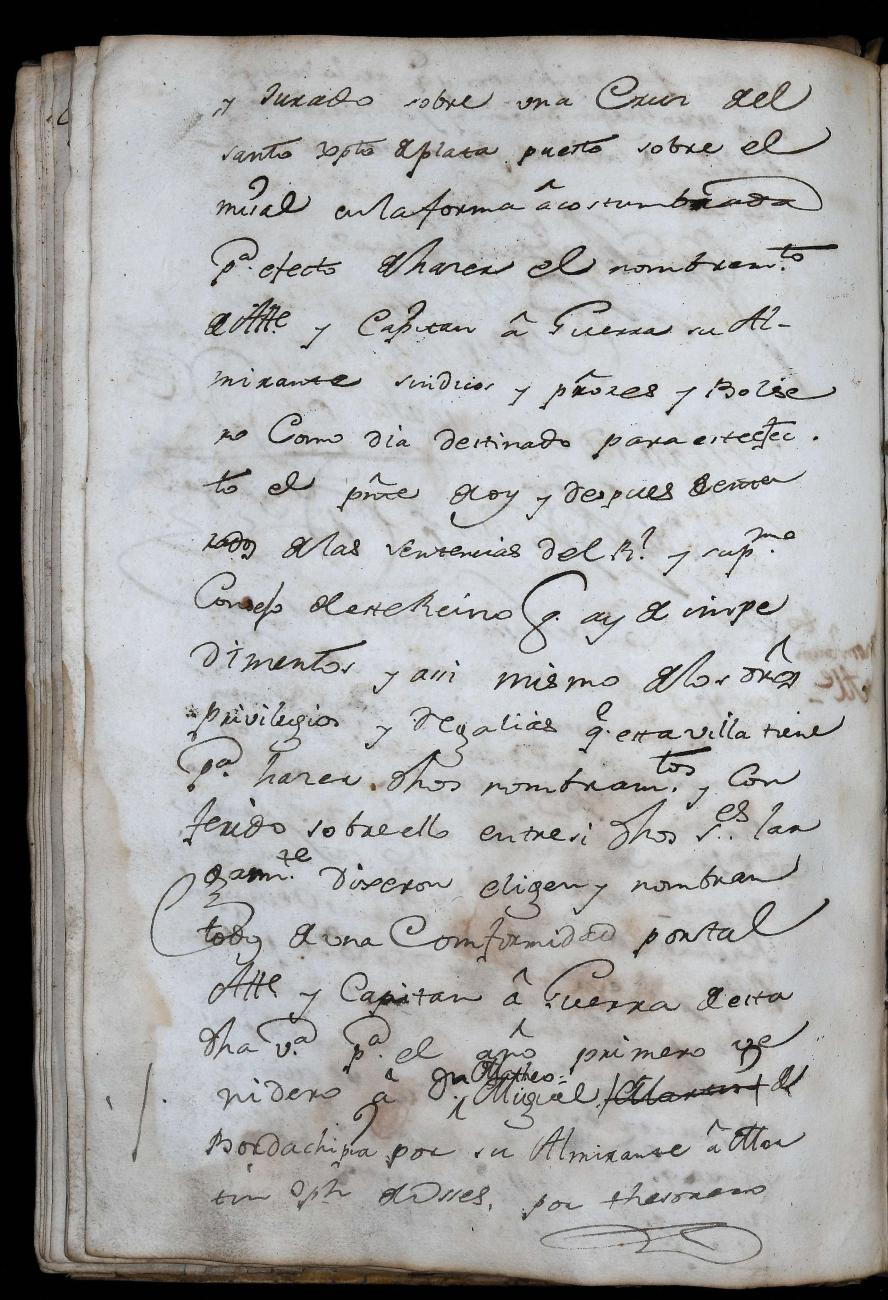 y Jurado sobre una Cruz del
santo xpto de plata puesto sobre el
misal en la forma acostumbrada
pa. efecto de hazer el nombramto.
de Alle. y Capitan â Guerra su Al-
mirante sindicos y pñores y Bolse
ro Como dia destinado para este efec
to el pnte doy y despues de ente
rados de las sentencias del Rl. y supmo.
Consejo de este Reino q. ay de impe
dimentos y assi mismo de los drôs
privilegios y regalias q. esta villa tiene
pa. hazer dhos nombramtos. y Con
ferido sobre ello entre si dhos ses. lar
gamte. dixeron eligen y nombran
todos de una Comformidad por tal
Alle. y Capitan â Guerra de esta
dha va. pa. el año primero ve
nidero â Dn Matheo Miguel (Martin) de
Bordachipia por su Almirante â Mar
tin Jph de Osses, por thesorero